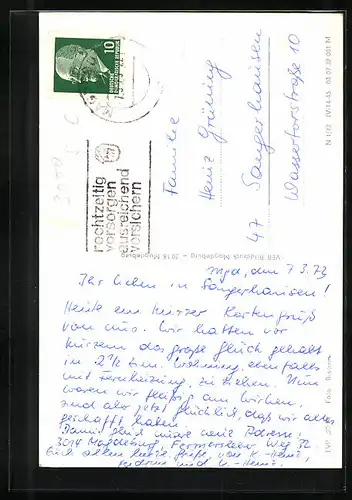 10
DEUTSCHE
DEMOKRATISCHE REPUBLIK
rechtzeitig
vorsorgen
ausreichend
versichern
Familie
Heinz Grüning
47 Sangerhausen
Wassertorstraße 10
N 1/72 IV-14-45 01 07 22 001 M
VEB Bilddruck Magdeburg – 3018 Magdeburg
Mgd., den 7.3.73
Ihr Lieben in Sangerhausen!
Heute ein kurzer Kartengruß
von uns. Wir hatten vor
kurzem das große Glück gehabt
in 2½ Zim. Wohnung, ebenfalls
mit Fernheizung, zu ziehen. Nun
waren wir fleißig am Wirken,
sind aber jetzt glücklich, daß wir alles
geschafft haben.
Damit gleich unsere neue Adresse:
3014 Magdeburg, Fermersleber Weg 32
Euch allen herzl. Grüße, von K.-Heinz,
und
Foto: